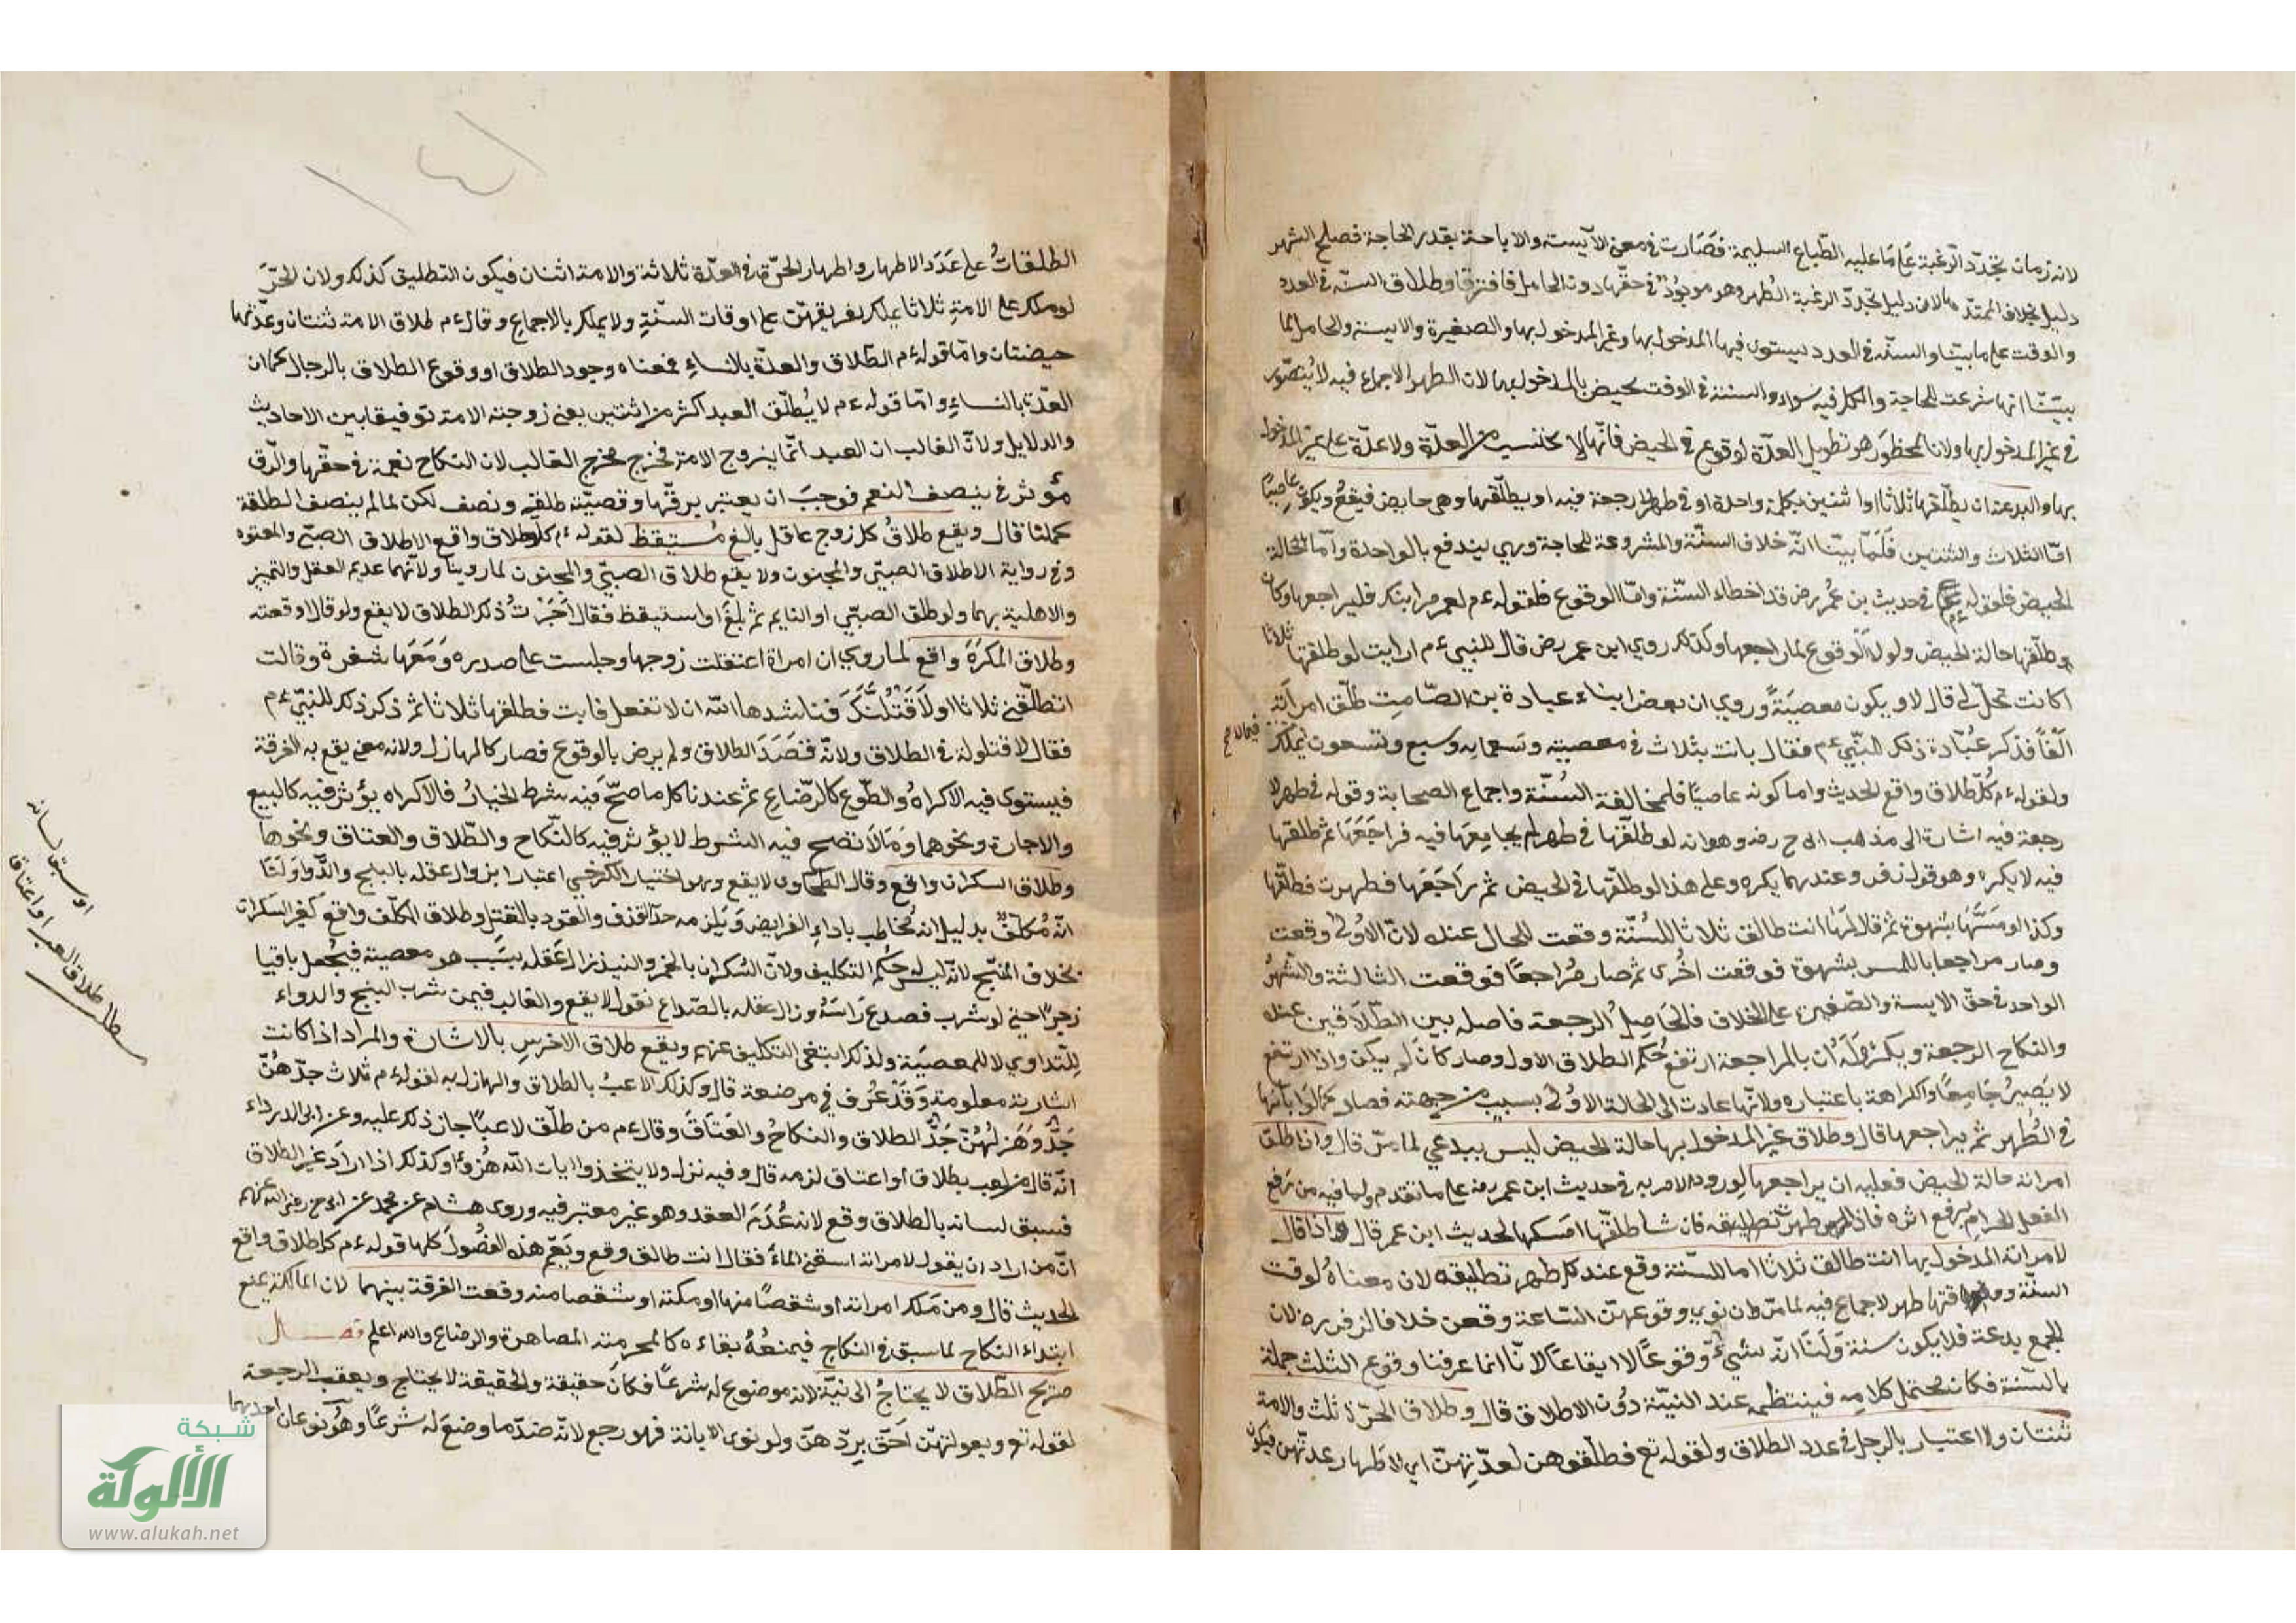 لانه زمان تجدّد الرغبة عَلى مَا عليه الطّباع السليمة فصَارت فى معنى الآيسة والاباحة بقدر الحاجة فصلح الشهر
دليل بخلاف الممتدّ لان دليل تجدّد الرغبة الطُهر وهو موجُودٌ فى حقّها دون الحامل فافترقا وطلاق السنّه فى العدد
والوقت على ما بيّنا والسنّه فى العدد يستوى فيها المدخول بها وغير المدخول بها والصغيرة والايسة والحامل لما
بيّنّا انها شرعت للحاجة والكل فيه سواء والسنة فى الوقت تختص بالمدخول بها لان الطهر الاجماع فيه لا يُتصّور
فى غير المدخول بها ولان المحظور هو تطويل العدّة لو وقع فى الحيض فانّها لا تحتسب من العدّة ولا عدّة على غير المدخول
بها والبدعة ان يطلّقها ثلاثا او اثنتين بكلمة واحدة او فى طهر لا رجعة فيه او يطلّقها وهى حايض فيقعُ ويكون عاصيًا
امّا الثلاث والثنتين فَلَمّا بيّنا انّه خلاف السنّة والمشروعة للحاجة وهى يندفع بالواحدة وامّا الحالة
الحيض فلقوله عم فى حديث بن عُمر رض قد اخطاء السنّة وامّا الوقوع فلقوله عم لعمر مر ابنك فليراجعها وكان
طلّقها حالة الحيض ولولا الوقوع لما راجعها وكذلك روى ابن عمر رض قال للنبى عم ارايت لو طلقتها ثلاثا
اكانت تحلّ لى قال لا ويكون معصيَةً وروى ان بعض ابناء عبادة بن الصّامت طلّق امراته
الفًا فذكر عُبادة ذلك للنّبى عم فقال بانت بثلاث فى معصية وتسعمايه وسبع وتسعون فيما لا يملك
ولقوله عم كُلّ طلاق واقع الحديث واما كونه عاصيًا فلمخالفة السُنّة واجماع الصحابة وقوله فى طهر لا
رجعة فيه اشارة الى مذهب ابى ح رض وهو انه لو طلّقها فى طهر لم يجامِعها فيه فراجَعَهَا ثم طلقها
فيه لا يكره وهو قول زفر وعندهما يكره وعلى هذا لو طلّقها فى الحيض ثم راجَعَها فطهرت فطلّقها
وكذا لو مَسَّهَا بشهوة ثم قال لهَا انت طالق ثلاثا للسُنّة وقعت للحال عنده لانّ الاُولى وقعت
وصار مراجعا باللمس بشهوة فوقعت اخُرى ثم صار مُراجعًا فوقعت الثالثة والشهرُ
الواحد فى حقّ الايسة والصّغيرة على الخلاف فالحَاصِل الرجعة فاصله بين الطّلاَقين عنده
والنكاح الرجعة ويكره ولَهُ ان بالمراجعة ارتفع حُكم الطلاق الاول وصار كانّ لم يكن واذا ارتفع
لا يَصيرُ جَامِعًا والكراهة باعتباره ولانّها عادت الى الحالة الاُولى بسبب من جهته فصار كما لَو ابانَها
فى الطُهر ثم يراجعها قال وطلاق غير المدخول بها حالة الحيض ليس ببدعى لما مرّ قال واذا طلق
امراته حالة الحيض فعليه ان يراجعها لورود الامر به فى حديث ابن عمر رض على ما تقدم ولما فيه من رفع
الفعل الحرام برفع اثره فاذا طهرت فان شا طلّقها او امسكها لحديث ابن عمر قال واذا قال
لامراته المدخول بها انت طالق ثلاثا للسّنة وقع عند كل طهر تطليقه لان معناهُ لوقت
السنّة ووقتها طهر لا جماع فيه لما مرّ فان نوى وقوعهنّ السّاعة وقعن خلافا لزفر ره لان
الجمع بدعة فلا يكون سنة وَلَنَا انّه سُنىٌّ وُقوعًا لا ايقاعًا لانّا انما عرفنا وقوع الثلث جملة
بالسّنة فكان محتمل كلامه فينتظمه عند النيّة دُون الاطلاق قال وطلاق الحرّة ثلث والامة
ثنتان ولا اعتبار بالرجل فى عدد الطلاق ولقوله تع فطلّقوهن لعدّتهنّ اى لاطهار عدّتهن فيكون
الطلقاتُ على عَدَد الاطهار واطهار الحرّة فى العدّة ثلاثة والامة اثنان فيكون التطليق كذلك ولان الحرَّ
لو ملك على الامةِ ثلاثا يملك تفريقهنّ على اوقات السنّةِ ولا يملك بالاجماع وقال عم طلاق الامة ثنتان وعدّتها
حيضتان وامّا قوله عم الطّلاق والعدّة بالنساءِ فمعناه وجود الطلاق او وقوع الطلاق بالرجال كما ان
العدّة بالنساءِ وامّا قوله عم لا يُطلّق العبد اكثر من اثنتين يعنى زوجته الامة توفيقا بين الاحاديث
والدلايل ولانّ الغالب ان العبد انّما يتزوج الامة فخرج مخرج الغالب لان النكاح نعمة فى حقّها والرّق
مؤثر فى ينصف النعم فوجبَ ان يعتبر برقّها وقضيّته طلقة ونصف لكن لما لم ينصف الطلقة
كملنا قال ويقع طلاقُ كل زوج عاقل بالغ مُستيقظ لقوله عم كل طلاق واقع الا طلاق الصبّى والمعتوه
وفى رواية الا طلاق الصبّى والمجنون ولا يقع طلاق الصبّى والمجنون لما روينا ولانّهما عديم العقل والتميز
والاهلية بهما ولو طلق الصبّى او النايم ثم بلغَ او استيقظ فقال اَجَزْتُ ذلك الطلاق لا يقع ولو قال اوقعته
وطلاق المكرَهَ واقع لما روى ان امراة اعتقلت زوجها وجلست على صدره وَمَعَها شفرة وقالت
لتطلّقنى ثلاثا اولاَقتُلنَّكَ فناشدها الله ان لا تفعل فابت فطلقها ثلاثا ثم ذكر ذلك للنبىّ عم
فقال لا قيلولة فى الطلاق ولانّه قصَدَ الطلاق ولم يرض بالوقوع فصار كالهازل ولانه معنى يقع به الفرقة
فيستوى فيه الاكراهُ والطّوع كالرّضاعِ ثم عندنا كل ما صحّ فيه شرط الخيارُ فالاكراه يؤثر فيه كالبيع
والاجارة ونحوهما وَمَا لاَ تصح فيه الشروط لا يؤثر فيه كالنّكاح والطّلاق والعتاق ونحوها
وطلاق السكران واقع وقال الطحاوى لا يقع وهو اختيار الكرخى اعتبارا بزوال عقله بالبنج والدّوا وَلنَا
انّه مُكلّفٌ بدليل انه مُخاطب باداءِ الفرايض وَيَلزمه حدّ القذف والقود بالقتل وطلاق المكلّف واقع كغير السكران
بخلاف المبنّج لانّه ليس له حُكم التكليف ولانّ السُكران بالخمر والنبيذ زال عَقله بسَبب هو معصية فيُجعل باقيا
زجرًا حتى لو شرب فصدع رَاسَهُ وزال عقله بالصّداع نقول لا يقع والغالب فيمن شرب البنج والدواء
لِلّتداوى لا للمعصيَة ولذلك ابتغى التكليف عنهم ويقع طلاق الاخرسِ بالاشارة والمراد اذا كانت
اشارته معلومة وَقَدْ عُرف فى موضعة قال وكذلك اللاعبُ بالطلاق والهازل به لقوله عم ثلاث جدّهُنّ
جَدٌّ وَهَزلهُنّ جَدٌّ الطلاق والنكاحُ والعَتَاقَ وقال عم من طلّق لاعبًا جاز ذلك عليه وعن ابى الدرداء
انّه قال من لعب بطلاق او اعتاق لزمه قال وفيه نزل ولا يتخذوا ايات الله هُزوًا وكذلك اذا ارادَ غير الطلاق
فسبق لسانه بالطلاق وقع لانه عُدَمَ القصد وهو غير معتبر فيه وروى هشام عن محمد عن ابى ح رضى الله عنهم
انّ من اراد ان يقول لامراته اسقنى الماءَ فقال انت طالق وقع ويَعُمّ هذه الفصُولَ كلها قوله عم كل طلاق واقع
الحديث قال ومن مَلك امراته او شقصًا منها او ملكته او شقصا منه وقعت الفرقة بينهما لان المالكية يمنع
ابتداء النكاح لما سبق فى النكاح فيمنعُهُ بقاءه كالمحرمية المصاهرة والرضاع والله اعلم فصـــل
صريح الطّلاق لا يحتاجُ الى نيّة لانه موضوع له شرعًا فكانَ حقيقة والحقيقة لا يحتاج ويعقب الرجعة
لقوله تع وبعولتهنّ احَقّ بردّهنّ ولو نوى الابانة فهو رجع لانّه ضدّ ما وضعَ له شرعًا وهُو نوعان احدهما
او سبق لسانه
مطلب طلاق اللعب او اعتاق
شبكة
الألوكة
www.alukah.net